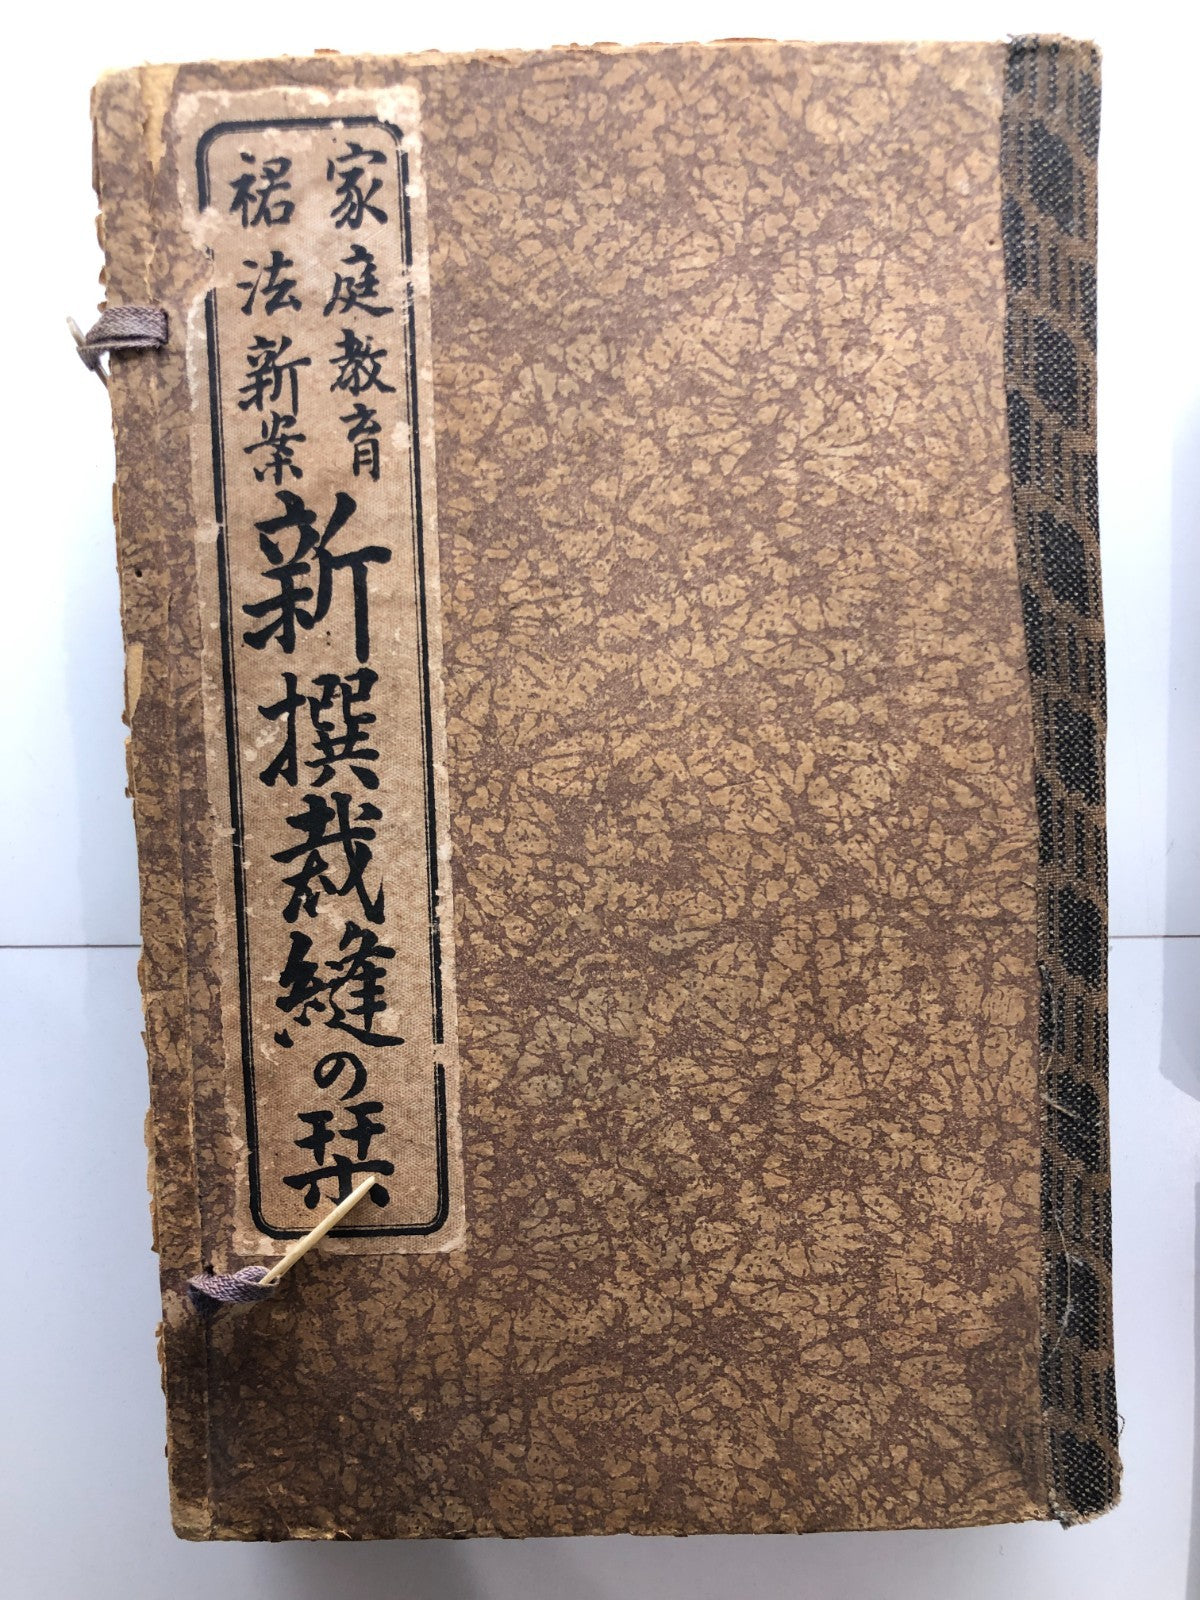 家庭教育
裙法新案
新撰裁縫の栞